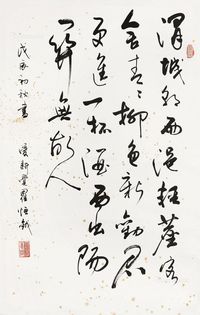 渭城朝雨浥輕塵客
舍青青柳色新勸君
更進一杯酒西出陽
關無故人
初秋書
愛新覺羅恒